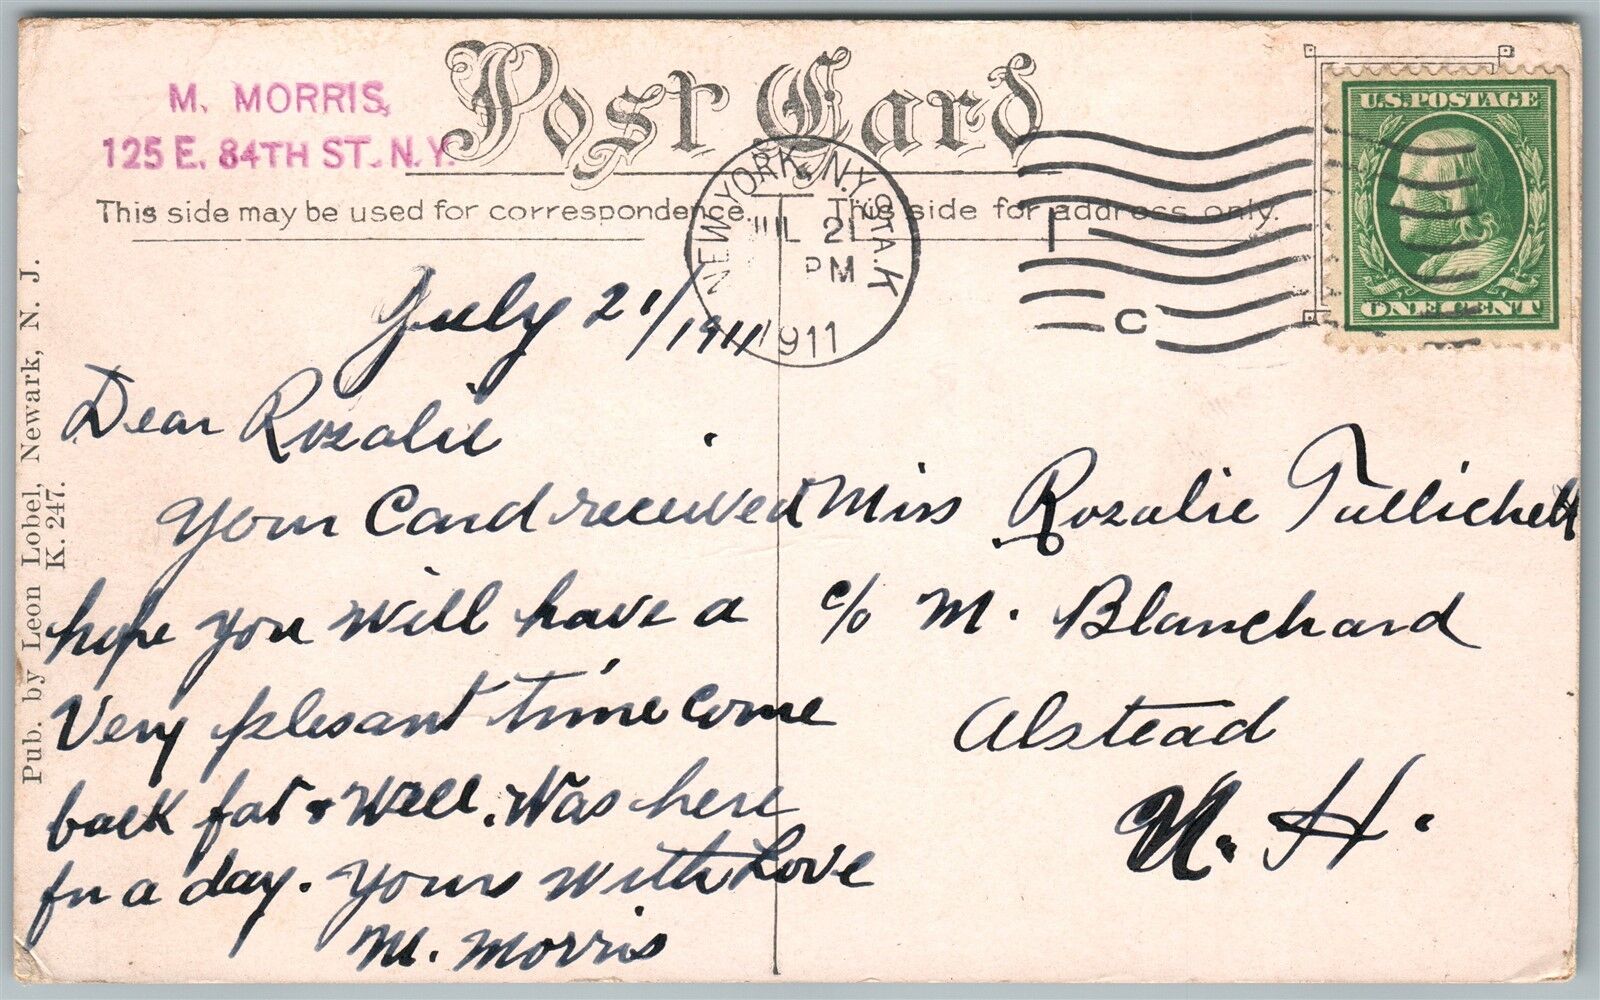 M. MORRIS,
125 E. 84TH ST. N.Y.
Post Card
This side may be used for correspondence.
This side for address only.
NEW YORK, N.Y. STA. K
JUL 21
PM
1911
C
U.S. POSTAGE
ONE CENT
Pub. by Leon Lobel, Newark, N. J.
K. 247.
July 21/1911
Dear Rozalie
Your Card received
hope you will have a
Very plesant time come
back fat & well. Was here
for a day. Yours with Love
M. Morris
Miss Rozalie
c/o M. Blanchard
Alstead
N. H.